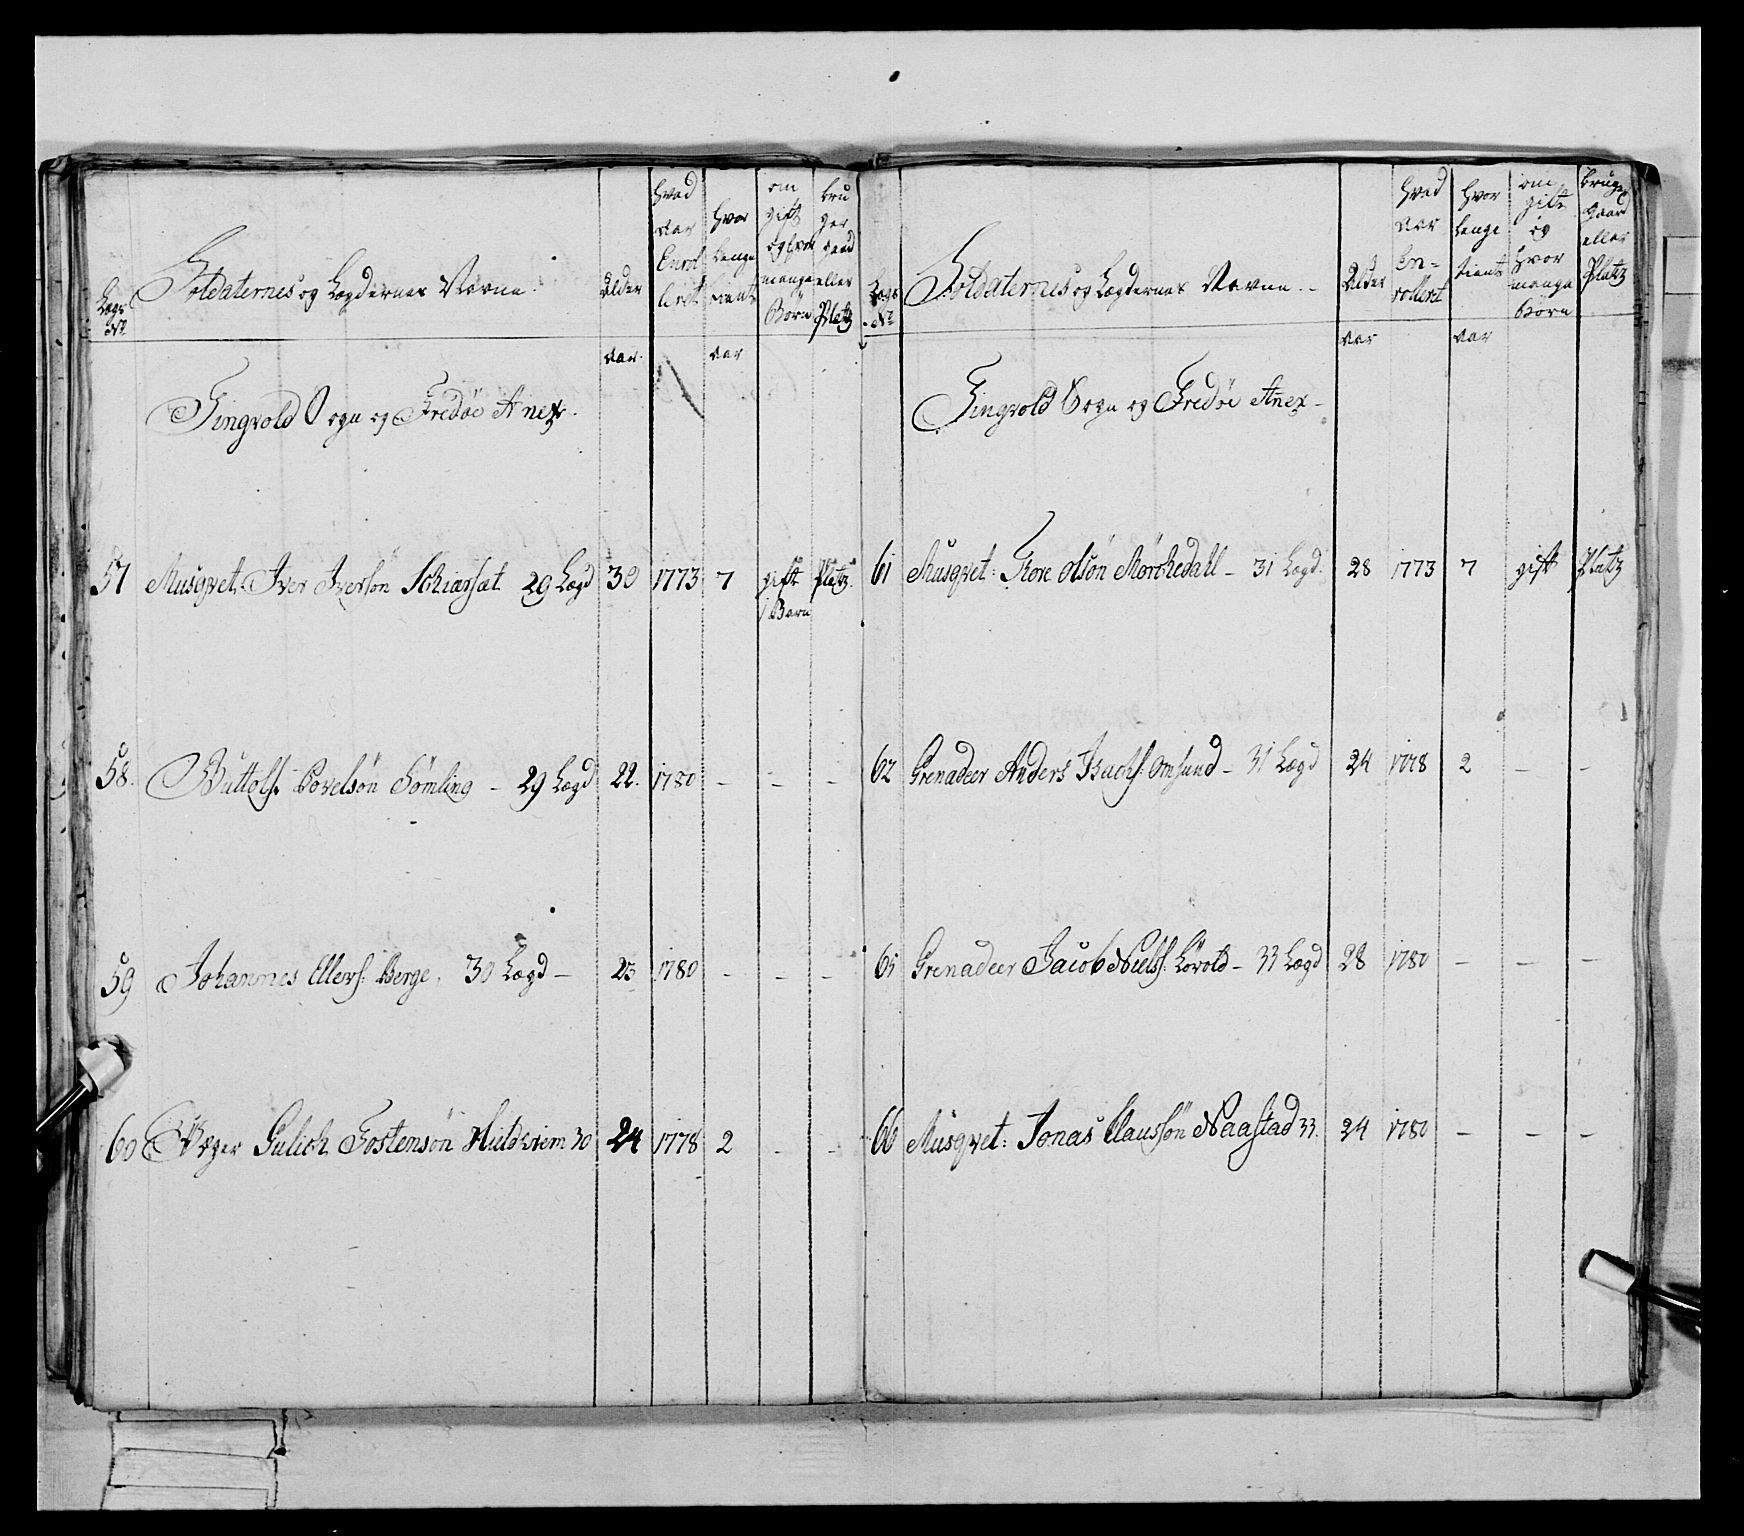 Lægs No
Soldaternes og Lægdernes Navne
Alder
hvad Aar Enrolleret
hvor lenge tient
om gift og hvor mange Børn
bruger gaard eller Platz
aar
aar
Tingvold Sogn og Fredøe Anex
57 Musqvet: Iver Iversön Schiærsæt 29 Lægd 30 1773 7 gift 1 Barn Platz
58. Buttolf Povelsön Sömling - 29 Lægd 22. 1780 - - -
59 Johannes Ellevs: Berge, 30 Lægd - 23 1780 - - -
60 Gulich Tostensön 30 24 1778 2 - -
Lægs No
Soldaternes og Lægdernes Navne
Alder
hvad Aar Enrolleret
hvor lenge tient
om gift og hvor mange Børn
bruger gaard eller Platz
aar
aar
Tingvold Sogn og Fredøe Anex
61 Musqvet: Tore Olsön Mörchedahl - 31 Lægd. 28 1773 7 gift Platz
62 Grenadeer Anders Isachs: Omsund - 31 Lægd 24 1778 2 - -
65 Grenadeer Jacob Nielss: Lövold - 33 Lægd 28 1780 - - -
66 Musqvet: Jonas Claussön Naastad 33. 24 1780 - - -